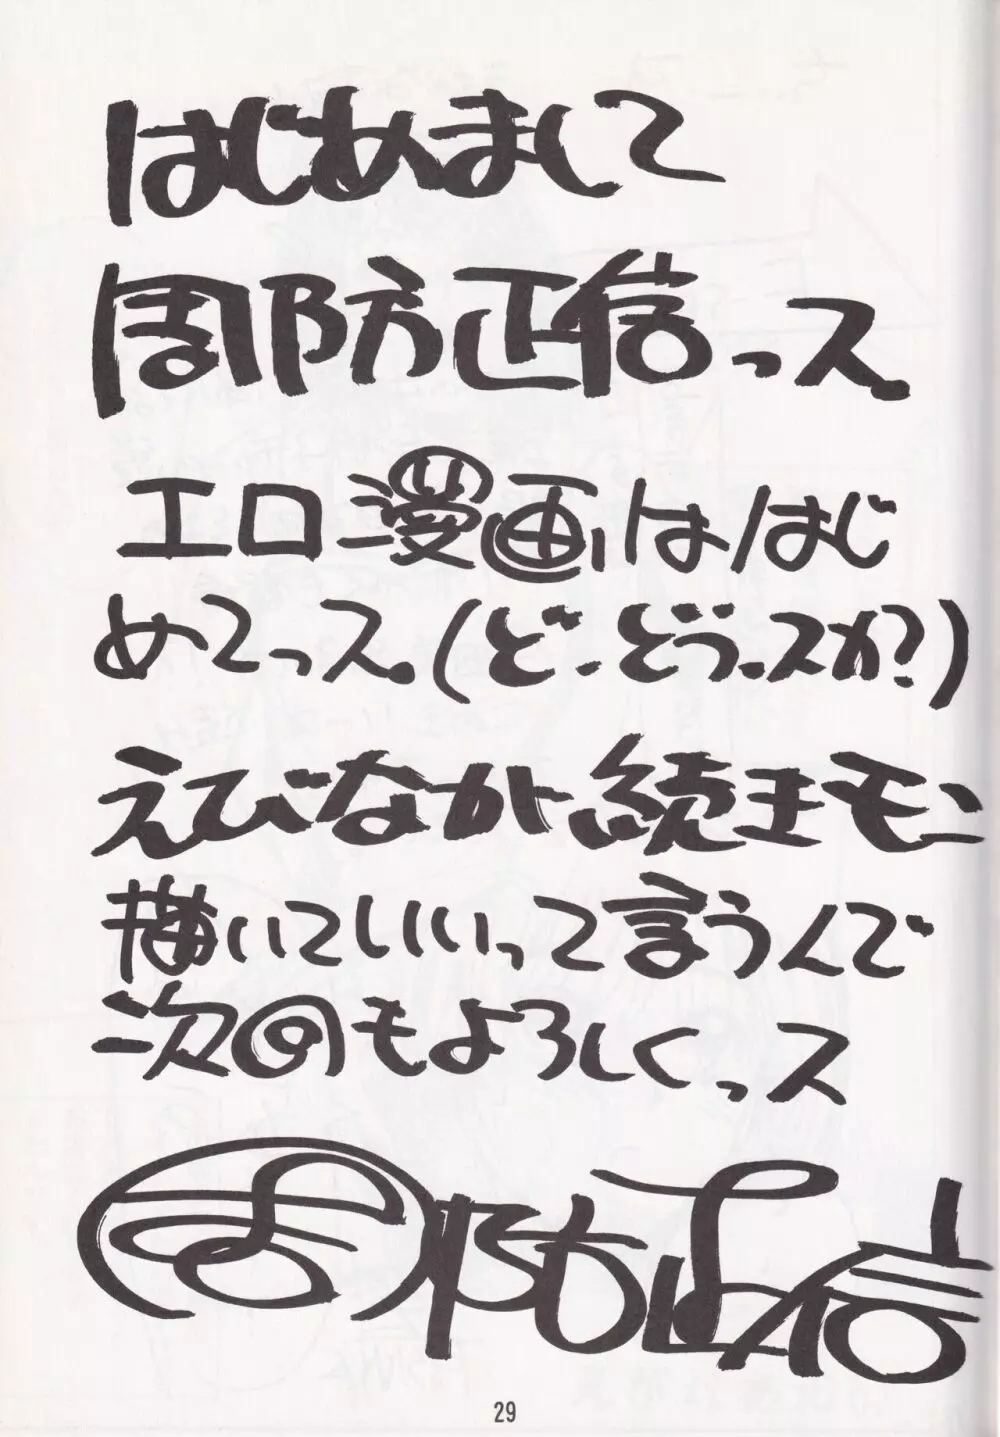 はじめまして
周防正信っス。
エロ漫画は、はじ
めてっス。(ど、どうっスか?)
えびなが続きモン
描いていいって言うんで
次回もよろしくっス
周防正信
29